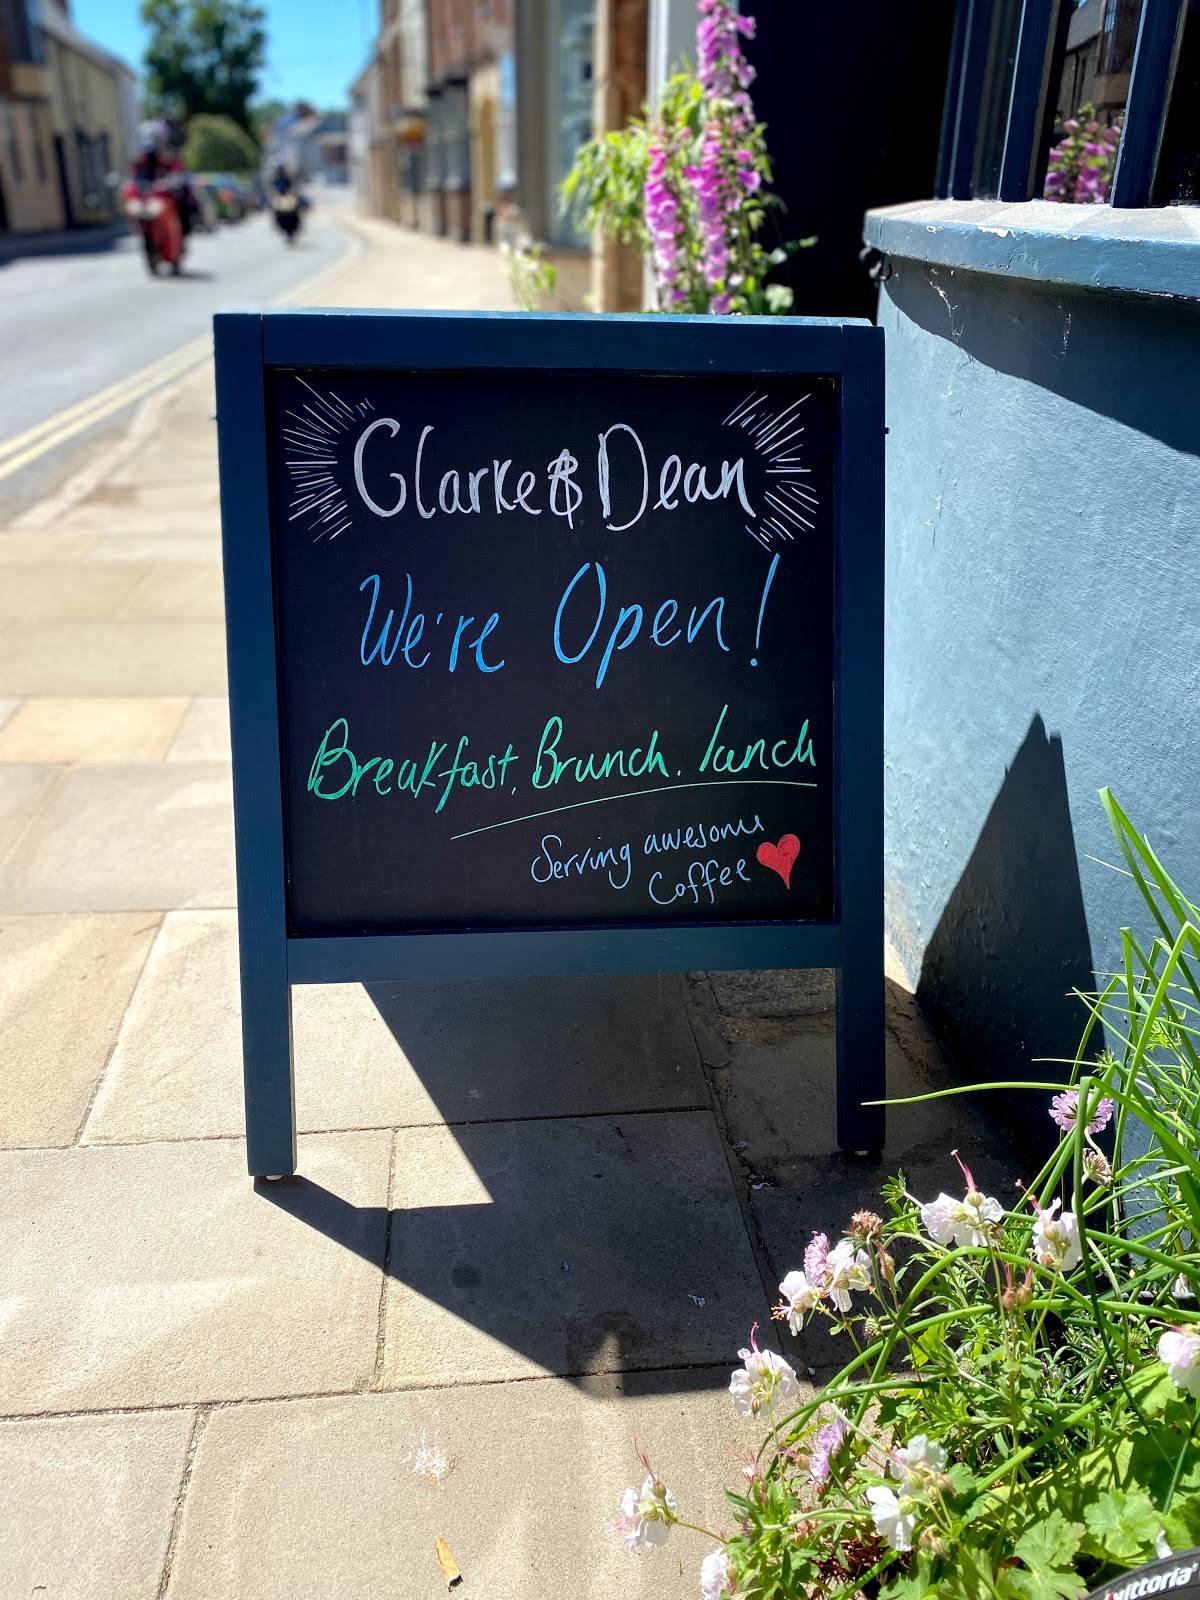 Clarke & Dean
We're Open!
Breakfast, Brunch, lunch
Serving awesome
Coffee
vittoria